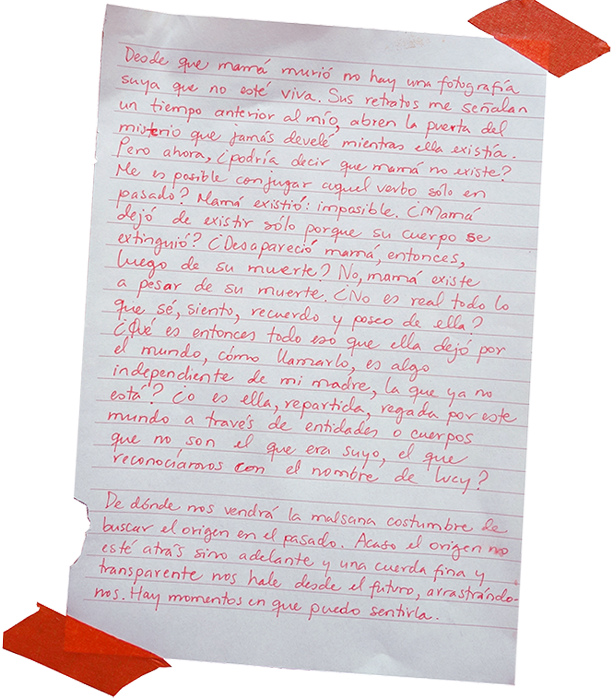 Desde que mamá murió no hay una fotografía
suya que no esté viva. Sus retratos me señalan
un tiempo anterior al mío, abren la puerta del
misterio que jamás develé mientras ella existía.
Pero ahora, ¿podría decir que mamá no existe?
Me es posible conjugar aquel verbo sólo en
pasado? Mamá existió: imposible. ¿Mamá
dejó de existir sólo porque su cuerpo se
extinguió? ¿Desapareció mamá, entonces,
luego de su muerte? No, mamá existe
a pesar de su muerte. ¿No es real todo lo
que sé, siento, recuerdo y poseo de ella?
¿Qué es entonces todo eso que ella dejó por
el mundo, cómo llamarlo, es algo
independiente de mi madre, la que ya no
está? ¿o es ella, repartida, regada por este
mundo a través de entidades o cuerpos
que no son el que era suyo, el que
reconocíamos con el nombre de Lucy?
De dónde nos vendrá la malsana costumbre de
buscar el origen en el pasado. Acaso el origen no
esté atrás sino adelante y una cuerda fina y
transparente nos hale desde el futuro, arrastrándo-
nos. Hay momentos en que puedo sentirla.